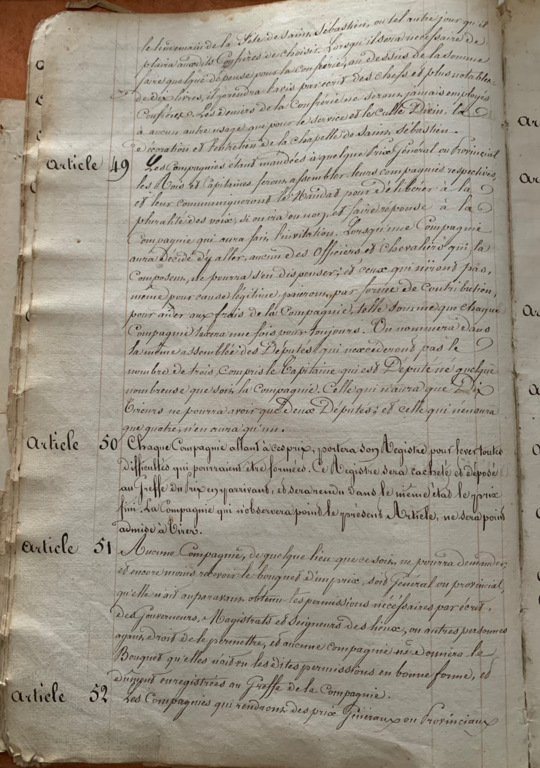 le lendemain de la Fête de saint Sébastien, ou tel autre jour qu'il
plaira aux dits Confrères de choisir. Lorsqu'il sera nécessaire de
faire quelque dépense pour la confrérie, au dessus de la somme
de dix livres, il prendra l'avis par écrit des Chefs et plus notables
Confrères. Les deniers de la Confrérie ne seront jamais employés
à aucun autre usage que pour le service et le culte Divin. la
décoration et l'entretien de la chapelle de saint sébastien.
Article 49 Les Compagnies étant mandées à quelque Prix Général ou Provincial
les Rois et Capitaines feront assembler leurs compagnies respectives,
et leur communiqueront le Mandat pour délibérer à la
pluralité des voix, si on ira ou non, et faire réponse à la
Compagnie qui aura fait l'invitation. Lorsqu'une Compagnie
aura Décidé d'y aller, aucun des Officiers et Chevaliers qui la
Composent, ne pourra s'en dispenser; et ceux qui n'iront pas,
même pour cause légitime paieront, par forme de contribution,
pour aider aux frais de la Compagnie, telle somme que chaque
Compagnie taxera une fois pour toujours. On nommera dans
la même assemblée des Députés, qui n'excéderont pas le
nombre de trois, Compris le Capitaine qui est Député né quelque
nombreuse que soit la Compagnie. Celle qui n'aura que Dix
Tireurs ne pourra avoir que deux Députés; et celle qui n'en aura
que quatre, n'en aura qu'un.
Article 50 Chaque Compagnie allant à ces prix, portera son Registre pour lever toutes
difficultés qui pourraient être formées. Ce Registre sera cacheté et déposé
au Greffe du Prix en y arrivant, et sera rendu dans le même état le prix
fini. La Compagnie qui n'observera point le présent Article, ne sera point
admise à Tirer.
Article 51 Aucune Compagnie, de quelque lieu que ce soit, ne pourra demander,
et encore moins recevoir le bouquet d'un prix, soit Général ou provincial,
qu'elle n'ait auparavant obtenu les permissions nécéssaires par écrit,
des Gouverneurs, Magistrats et Seigneurs des lieux, ou autres personnes
ayant droit de le permettre, et aucune compagnie ne donnera le
Bouquet qu'elles n'ait vu les dites permissions en bonne forme, et
duëment enregistrées au Greffe de la Compagnie.
Article 52 Les Compagnies qui rendront des prix Généraux ou Provinciaux